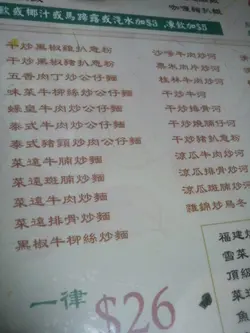 飲或椰汁或馬蹄露或汽水加$3 .凍飲加$5
干炒黑椒雞扒意粉
干炒黑椒豬扒意粉
五香肉丁炒公仔麵
味菜牛柳絲炒公仔麵
蠔皇牛肉炒公仔麵
泰式牛肉炒公仔麵
泰式豬頸肉炒公仔麵
菜遠牛腩炒麵
菜遠斑腩炒麵
菜遠牛肉炒麵
菜遠排骨炒麵
黑椒牛柳絲炒麵
沙嗲牛肉炒河
粟米肉片炒河
桂林牛肉炒河
干炒牛河
干炒排骨河
干炒燒腩仔河
干炒豬扒意粉
涼瓜牛肉炒河
涼瓜排骨炒河
涼瓜斑腩炒河
雜錦炒烏冬
一律 $26
福建
雪菜
頂級
菜遠